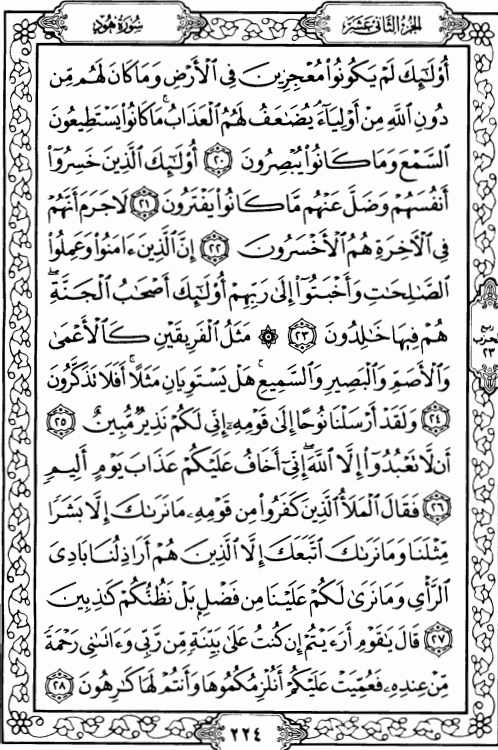 الجزء الثاني عشر
سورة هود
أُوْلَٰٓئِكَ لَمْ يَكُونُواْ مُعْجِزِينَ فِي ٱلْأَرْضِ وَمَا كَانَ لَهُم مِّن
دُونِ ٱللَّهِ مِنْ أَوْلِيَآءَۘ يُضَٰعَفُ لَهُمُ ٱلْعَذَابُۚ مَا كَانُواْ يَسْتَطِيعُونَ
ٱلسَّمْعَ وَمَا كَانُواْ يُبْصِرُونَ ٢٠ أُوْلَٰٓئِكَ ٱلَّذِينَ خَسِرُوٓاْ
أَنفُسَهُمْ وَضَلَّ عَنْهُم مَّا كَانُواْ يَفْتَرُونَ ٢١ لَا جَرَمَ أَنَّهُمْ
فِي ٱلْأَخِرَةِ هُمُ ٱلْأَخْسَرُونَ ٢٢ إِنَّ ٱلَّذِينَ ءَامَنُواْ وَعَمِلُواْ
ٱلصَّٰلِحَٰتِ وَأَخْبَتُوٓاْ إِلَىٰ رَبِّهِمْ أُوْلَٰٓئِكَ أَصْحَٰبُ ٱلْجَنَّةِۖ
هُمْ فِيهَا خَٰلِدُونَ ٢٣ ۞ مَثَلُ ٱلْفَرِيقَيْنِ كَٱلْأَعْمَىٰ
وَٱلْأَصَمِّ وَٱلْبَصِيرِ وَٱلسَّمِيعِۚ هَلْ يَسْتَوِيَانِ مَثَلًاۚ أَفَلَا تَذَكَّرُونَ
٢٤ وَلَقَدْ أَرْسَلْنَا نُوحًا إِلَىٰ قَوْمِهِۦٓ إِنِّي لَكُمْ نَذِيرٌ مُّبِينٌ ٢٥
أَن لَّا تَعْبُدُوٓاْ إِلَّا ٱللَّهَۖ إِنِّيٓ أَخَافُ عَلَيْكُمْ عَذَابَ يَوْمٍ أَلِيمٍ
٢٦ فَقَالَ ٱلْمَلَأُ ٱلَّذِينَ كَفَرُواْ مِن قَوْمِهِۦ مَا نَرَىٰكَ إِلَّا بَشَرًا
مِّثْلَنَا وَمَا نَرَىٰكَ ٱتَّبَعَكَ إِلَّا ٱلَّذِينَ هُمْ أَرَاذِلُنَا بَادِيَ
ٱلرَّأْيِ وَمَا نَرَىٰ لَكُمْ عَلَيْنَا مِن فَضْلٍۭ بَلْ نَظُنُّكُمْ كَٰذِبِينَ
٢٧ قَالَ يَٰقَوْمِ أَرَءَيْتُمْ إِن كُنتُ عَلَىٰ بَيِّنَةٍ مِّن رَّبِّي وَءَاتَىٰنِي رَحْمَةً
مِّنْ عِندِهِۦ فَعُمِّيَتْ عَلَيْكُمْ أَنُلْزِمُكُمُوهَا وَأَنتُمْ لَهَا كَٰرِهُونَ ٢٨
ربع
الحزب
٢٣
٢٢٤